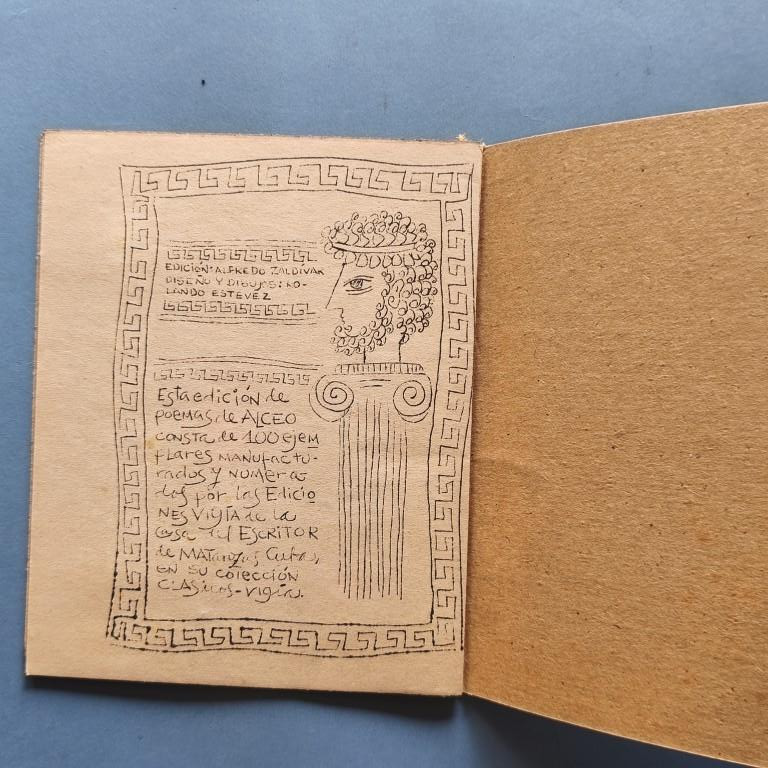 EDICIÓN: ALFREDO ZALDÍVAR
DISEÑO Y DIBUJOS: RO-
LANDO ESTEVEZ
Esta edición de
poemas de ALCEO
consta de 100 ejem
plares manufactu-
rados y numera
dos por las Edicio
NES VIGÍA de la
casa del ESCRITOR
de MATanzas, Cuba,
EN SU COLECCIÓN
CLÁSICOS-VIGÍA.